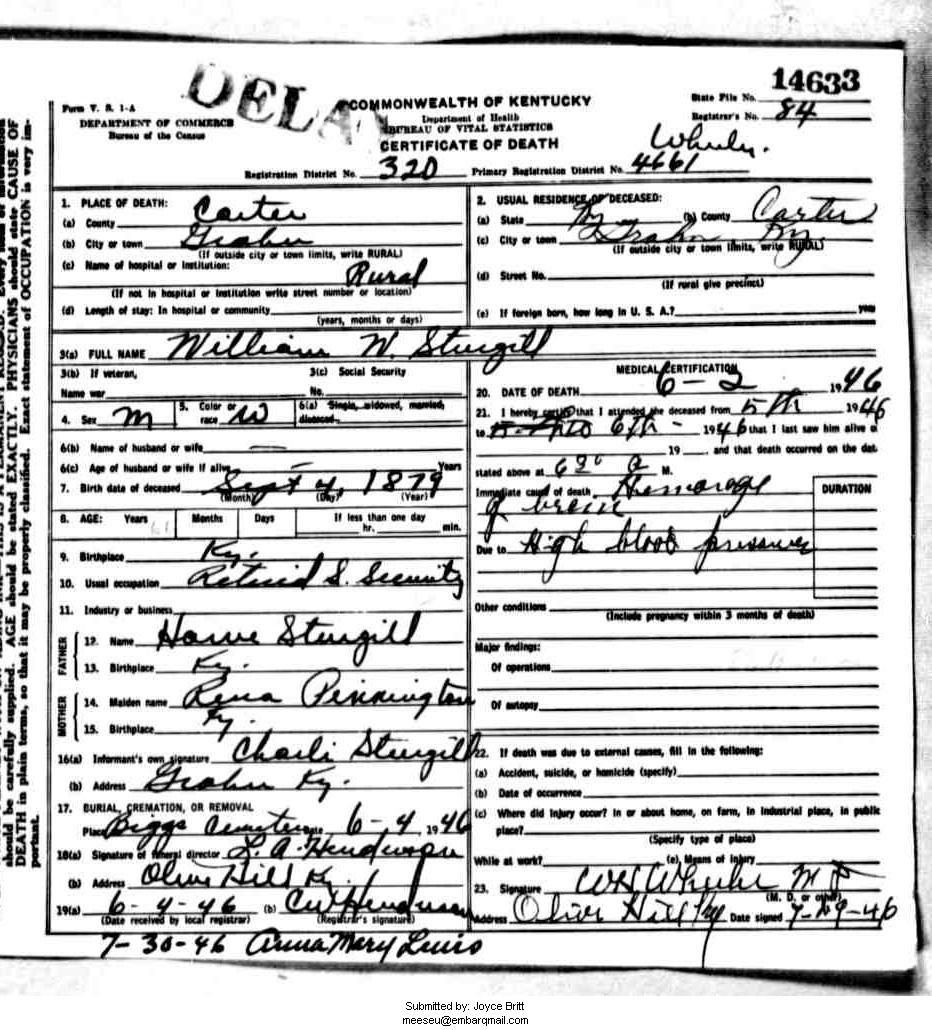 14633
DELAY
Form V. S. 1-A
COMMONWEALTH OF KENTUCKY
State File No.
DEPARTMENT OF COMMERCE
Department of Health
Registrar's No. 84
Bureau of the Census
BUREAU OF VITAL STATISTICS
CERTIFICATE OF DEATH
Registration District No. 320 Primary Registration District No. 4661
1. PLACE OF DEATH:
(a) County Carter
(b) City or town Grahn
(If outside city or town limits, write RURAL)
(c) Name of hospital or institution:
Rural
(If not in hospital or institution write street number or location)
(d) Length of stay: In hospital or community
(years, months or days)
2. USUAL RESIDENCE OF DECEASED:
(a) State Ky (b) County Carter
(c) City or town Grahn Ky
(If outside city or town limits, write RURAL)
(d) Street No.
(If rural give precinct)
(e) If foreign born, how long in U. S. A.? years
3(a) FULL NAME William W. Sturgill
3(b) If veteran,
Name war
3(c) Social Security
No.
4. Sex M
5. Color or race W
6(a) Single, widowed, married, divorced
6(b) Name of husband or wife
6(c) Age of husband or wife if alive Years
7. Birth date of deceased Sept 4, 1879
(Month) (Day) (Year)
8. AGE: Years Months Days If less than one day
hr. min.
9. Birthplace Ky.
10. Usual occupation Retired S. Security
11. Industry or business
FATHER
12. Name Sturgill
13. Birthplace Ky.
MOTHER
14. Maiden name Rena Pennington
15. Birthplace Ky.
16(a) Informant's own signature Charli Sturgill
(b) Address Grahn Ky.
17. BURIAL, CREMATION, OR REMOVAL
Place Biggs Cemetery Date 6-4 1946
18(a) Signature of funeral director L. A. Henderson
(b) Address Olive Hill Ky.
19(a) 6-4-46 (b) CW Henderson
(Date received by local registrar) (Registrar's signature)
7-30-46 Anna Mary Lewis
MEDICAL CERTIFICATION
20. DATE OF DEATH 6-2 1946
21. I hereby certify that I attended the deceased from 5th 1946
to 6th - 1946 that I last saw him alive on
19 and that death occurred on the date
stated above at 630 a M.
Immediate cause of death Hemorage
of brain
DURATION
Due to High blood pressure
Other conditions
(Include pregnancy within 3 months of death)
Major findings:
Of operations
Of autopsy
22. If death was due to external causes, fill in the following:
(a) Accident, suicide, or homicide (specify)
(b) Date of occurrence
(c) Where did injury occur? In or about home, on farm, in industrial place, in public
place?
(Specify type of place)
While at work? (e) Means of injury
23. Signature WH Wheeler M D
(M. D. or other)
Address Olive Hill Ky Date signed 7-29-46
should be carefully supplied. AGE should be stated EXACTLY. PHYSICIANS should state CAUSE OF
DEATH in plain terms, so that it may be properly classified. Exact statement of OCCUPATION is very im-
portant.
Submitted by: Joyce Britt
meeseu@embarqmail.com